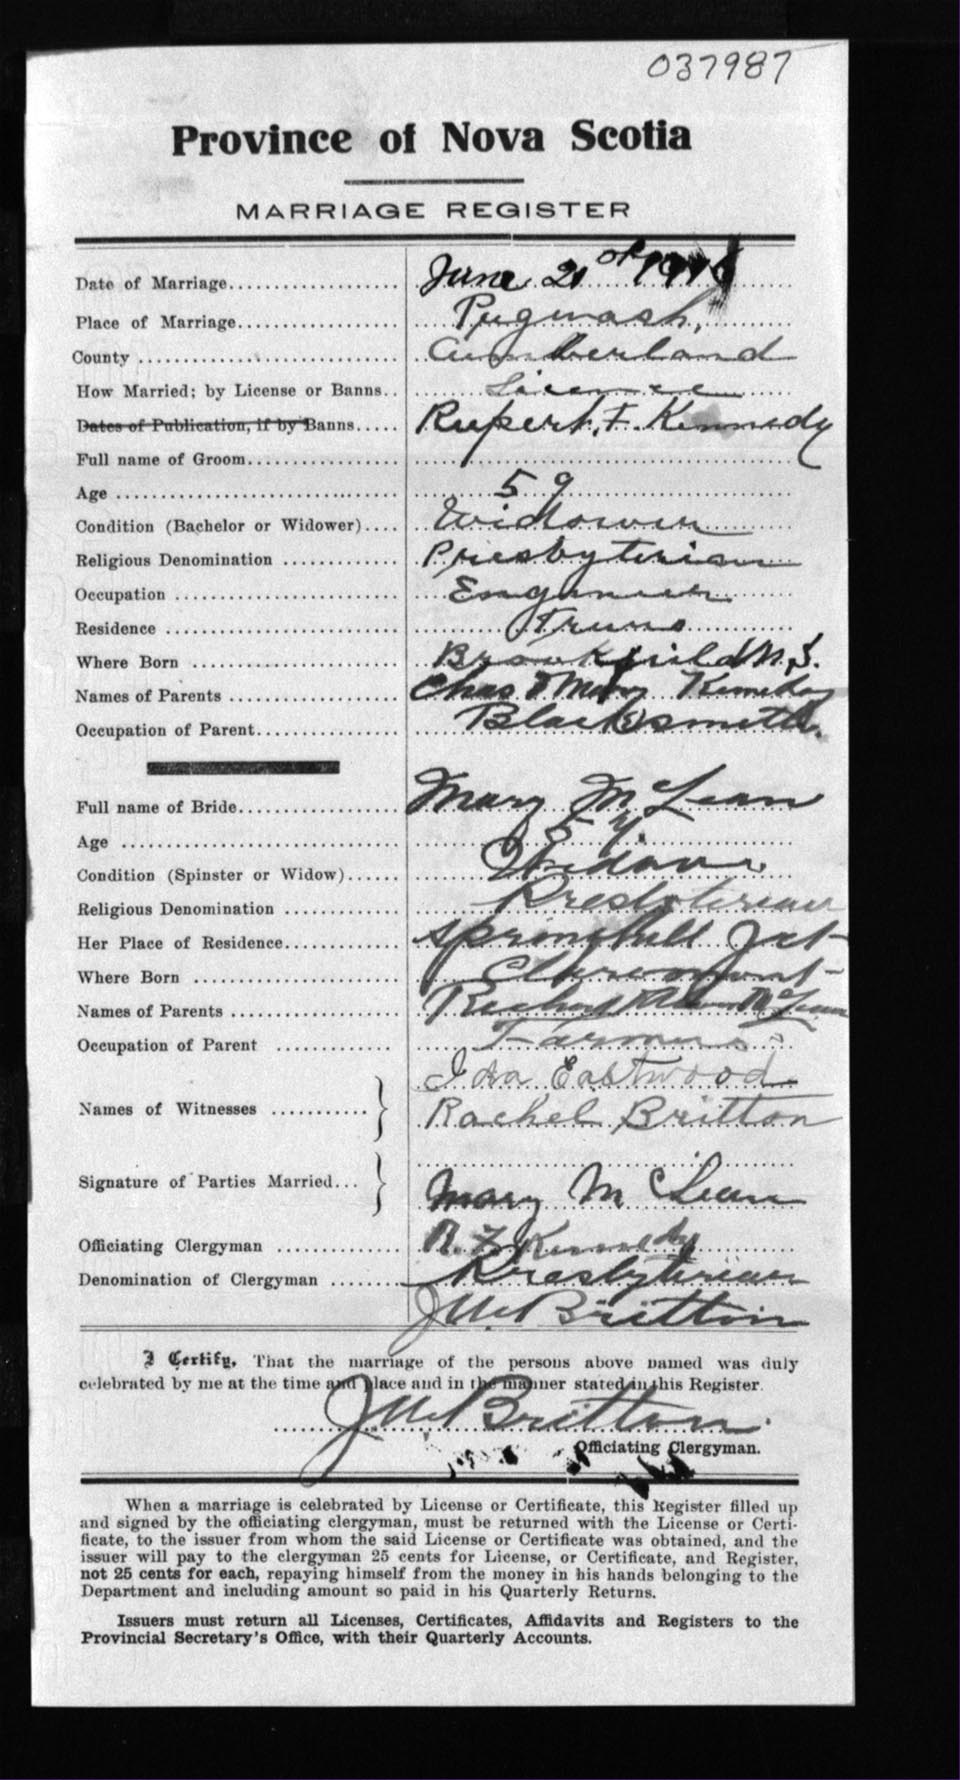 037987
Province of Nova Scotia
MARRIAGE REGISTER
Date of Marriage June 21
Place of Marriage Pugwash,
County Cumberland
How Married; by License or Banns License
Dates of Publication, if by Banns Rupert. F. Kennedy
Full name of Groom
Age 59
Condition (Bachelor or Widower) Widower
Religious Denomination Presbyterian
Occupation Engineer
Residence Truro
Where Born Brookfield N.S.
Names of Parents Chas & Mary Kennedy
Occupation of Parent Blacksmith.
Full name of Bride Mary McLean
Age
Condition (Spinster or Widow) Widow
Religious Denomination Presbyterian
Her Place of Residence Springhill Jct
Where Born Claremont
Names of Parents McLean
Occupation of Parent Farmer
Names of Witnesses Ida Eastwood
Rachel Britton
Signature of Parties Married Mary McLean
Officiating Clergyman R. F. Kennedy
Denomination of Clergyman Presbyterian
Britton
I Certify, That the marriage of the persons above named was duly
celebrated by me at the time and place and in the manner stated in this Register.
Britton
Officiating Clergyman.
When a marriage is celebrated by License or Certificate, this Register filled up
and signed by the officiating clergyman, must be returned with the License or Certi-
ficate, to the issuer from whom the said License or Certificate was obtained, and the
issuer will pay to the clergyman 25 cents for License, or Certificate, and Register,
not 25 cents for each, repaying himself from the money in his hands belonging to the
Department and including amount so paid in his Quarterly Returns.
Issuers must return all Licenses, Certificates, Affidavits and Registers to the
Provincial Secretary's Office, with their Quarterly Accounts.